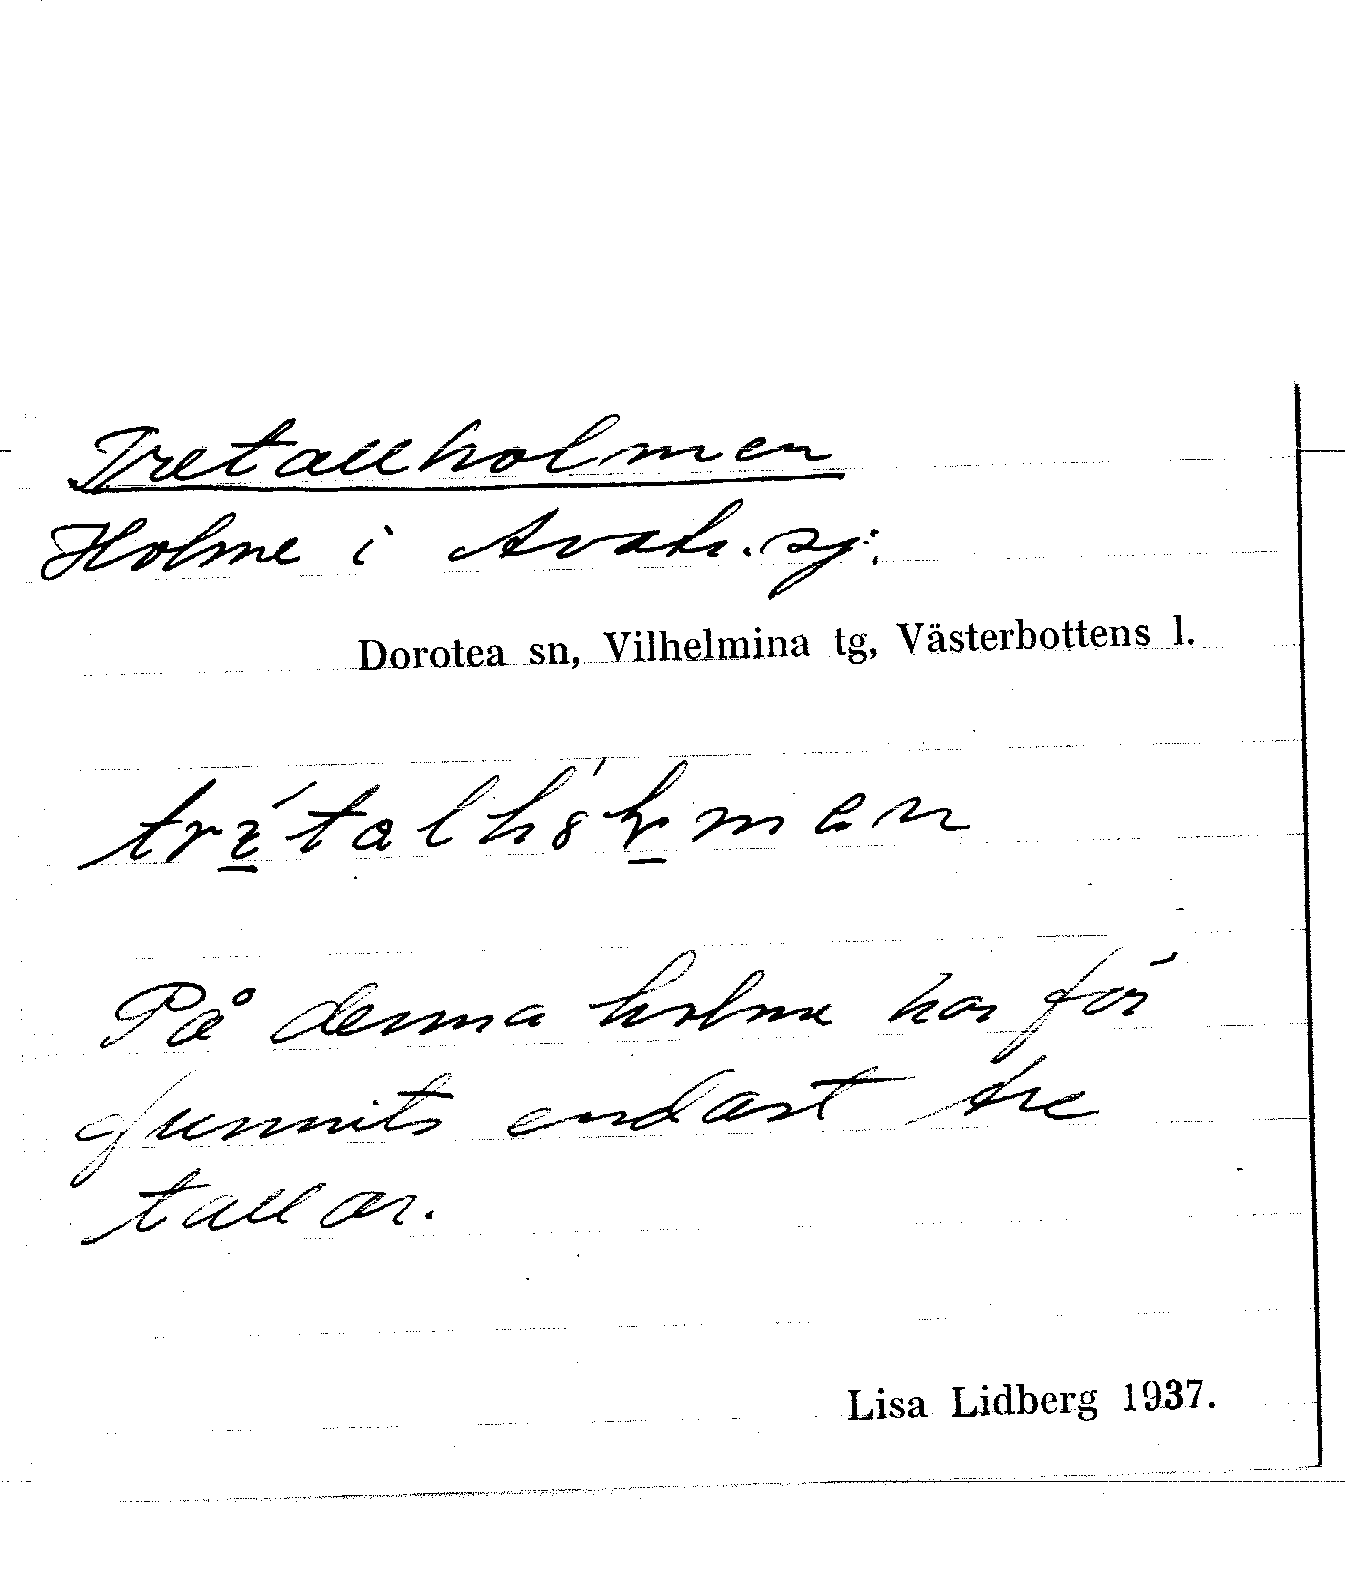 Tretallholmen
Holme i Avatr.sj:.
Dorotea sn, Vilhelmina tg, Västerbottens l.
På denna holme har för
funnits endast tre
tallar.
Lisa Lidberg 1937.